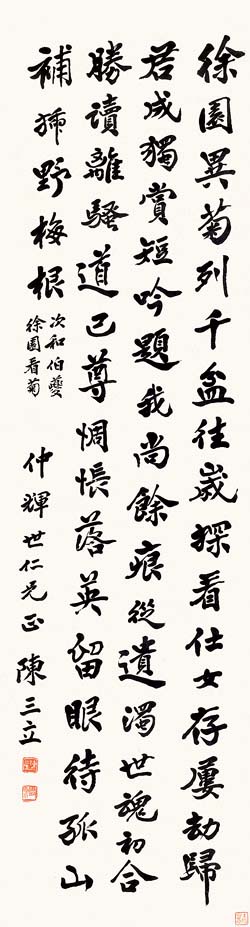 徐園異菊列千盆往歲探看仕女存屢劫歸
君成獨賞短吟題我尚餘痕從遺濁世魂初合
勝讀離騷道已尊惆悵落英留眼待孤山
補種野梅根
次和伯夔
徐園看菊
仲輝世仁兄正
陳三立